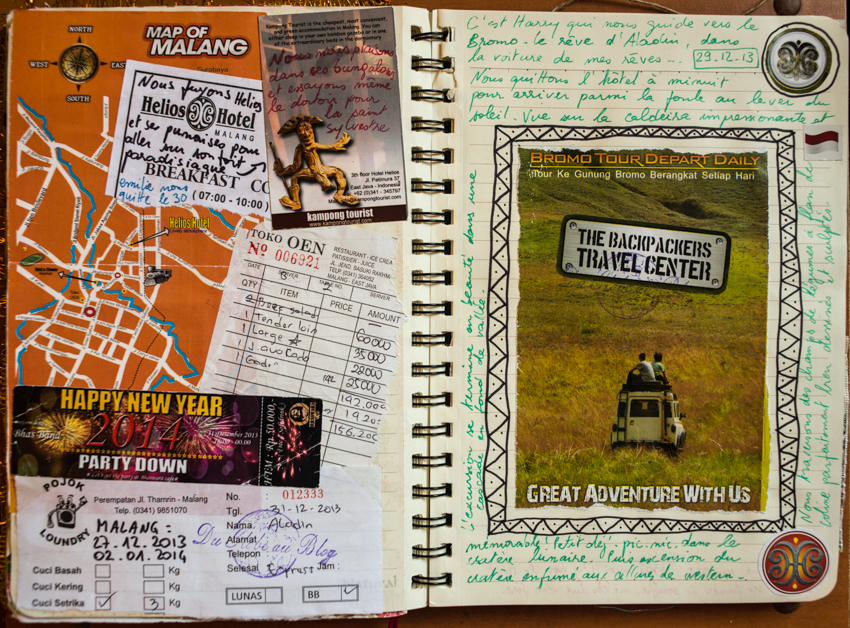 MAP OF
MALANG
NORTH
WEST
EAST
SOUTH
Surabaya
Nous fuyons Helios
Helios Hotel
MALANG
et ses punaises pour
aller sur son toit
paradisiaque
BREAKFAST CO
emilie nous
quitte le 30
(07:00 - 10:00)
Helios Hotel
Kampong Tourist is the cheapest, most convenient,
and green accommodation in Malang. You can
either sleep in your own bamboo gazebo or in one
of the extraordinary beds in the dormitory
Nous nous plaisons
dans ses bungalows
et essayons même
le dortoir pour
la saint
Sylvestre
3th floor Hotel Helios
Jl. Patimura 37
East Java - Indonesia
+62 (0)341 - 345797
Malang - East Java
kampong tourist
www.kampongtourist.com
TOKO OEN
No 006921
RESTAURANT - ICE CREA
PATISSIER - JUICE
JL. JEND. BASUKI RAKHM
TELP. (0341) 364052
MALANG - EAST JAVA
DATE
TABLE NO
SERVER
QTY
ITEM
PRICE
AMOUNT
2 Beef salad
60000
1 Tender loin
35000
1 Large
22000
1 J. avocado
25000
192.000
19.20
156.200
HAPPY NEW YEAR
2014
Bhas Band
31 December 2013
PARTY DOWN
HTM : Rp. 50.000,-
POJOK
LOUNDRY
Perempatan Jl. Thamrin - Malang
Telp. (0341) 9851070
MALANG :
27.12.2013
02.01.2014
No. : 012333
Tgl. 31-12-2013
Nama Aladin
Alamat
Telepon
Selesai Express Jam :
Du Tube au Blog
Cuci Basah Kg
Cuci Kering Kg
Cuci Setrika ✓ 3 Kg
LUNAS
BB ✓
C'est Harry qui nous guide vers le
Bromo - le rêve d'Aladin, dans
la voiture de mes rêves... 29.12.13
Nous quittons l'hôtel à minuit
pour arriver parmi la foule au lever du
soleil. Vue sur la caldeira impressionante et
BROMO TOUR DEPART DAILY
Tour Ke Gunung Bromo Berangkat Setiap Hari
THE BACKPACKERS
TRAVEL CENTER
GREAT ADVENTURE WITH US
mémorable! Petit déj. pic.nic. dans le
cratère lunaire. Puis ascension du
cratère enfumé aux allures de western...
Nous traversons des champs de légumes à flanc de
coline parfaitement bien dessinés et sculptés.
Excursion se termine en beauté dans une
cascade en fond de vallée.